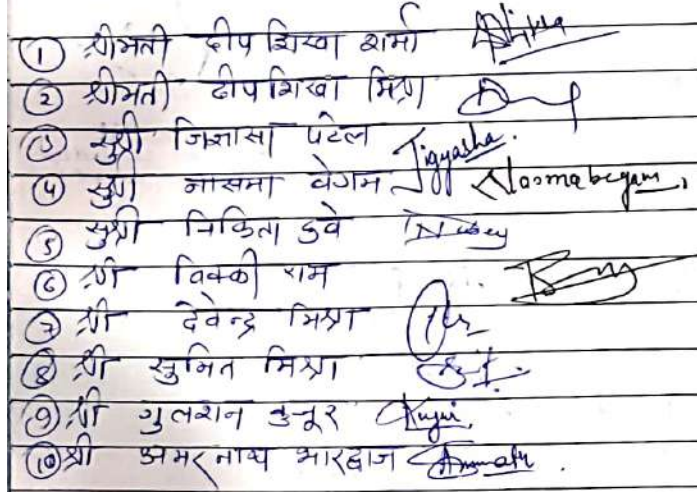 ① श्रीमती दीपशिखा शर्मा
② श्रीमती दीपशिखा मिश्रा
③ सुश्री जिज्ञासा पटेल Jigyasha.
④ सुश्री नासमा बेगम Nasmabegam,
⑤ सुश्री निकिता डवे
⑥ श्री विक्की राम
⑦ श्री देवेन्द्र मिश्रा
⑧ श्री सुमित मिश्रा
⑨ श्री गुलशन कुजूर Kujur.
⑩ श्री अमर नाथ भारद्वाज